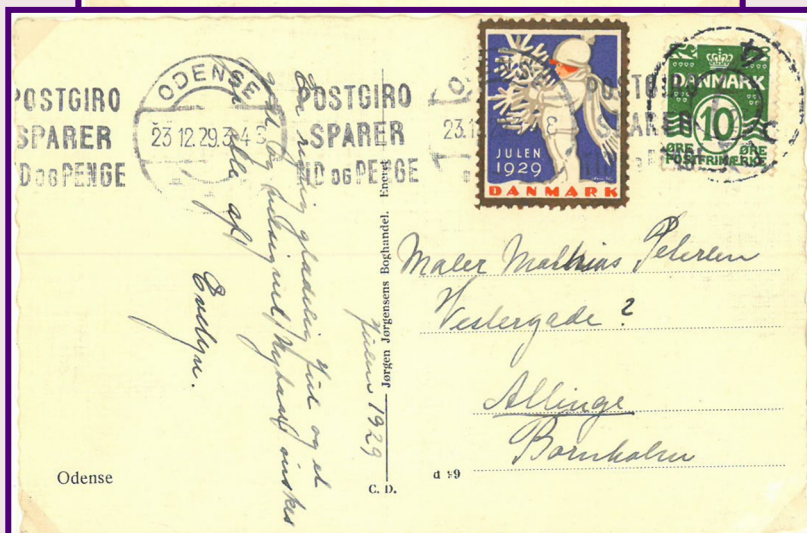 POSTGIRO
SPARER
D OG PENGE
ODENSE
23 12.29.3-4 S
POSTGIRO
SPARER
ID OG PENGE
JULEN
1929
DANMARK
DANMARK
10
ØRE ØRE
POSTFRIMÆRKE
Julen 1929
En rigtig glædelig Jul og et
godt og velsignet Nytaar ønskes
alle af
Evelyn.
Jørgen Jørgensens Boghandel. Eneret
Maler Mathias Petersen
Vestergade ?
Allinge
Bornholm
Odense
C. D.